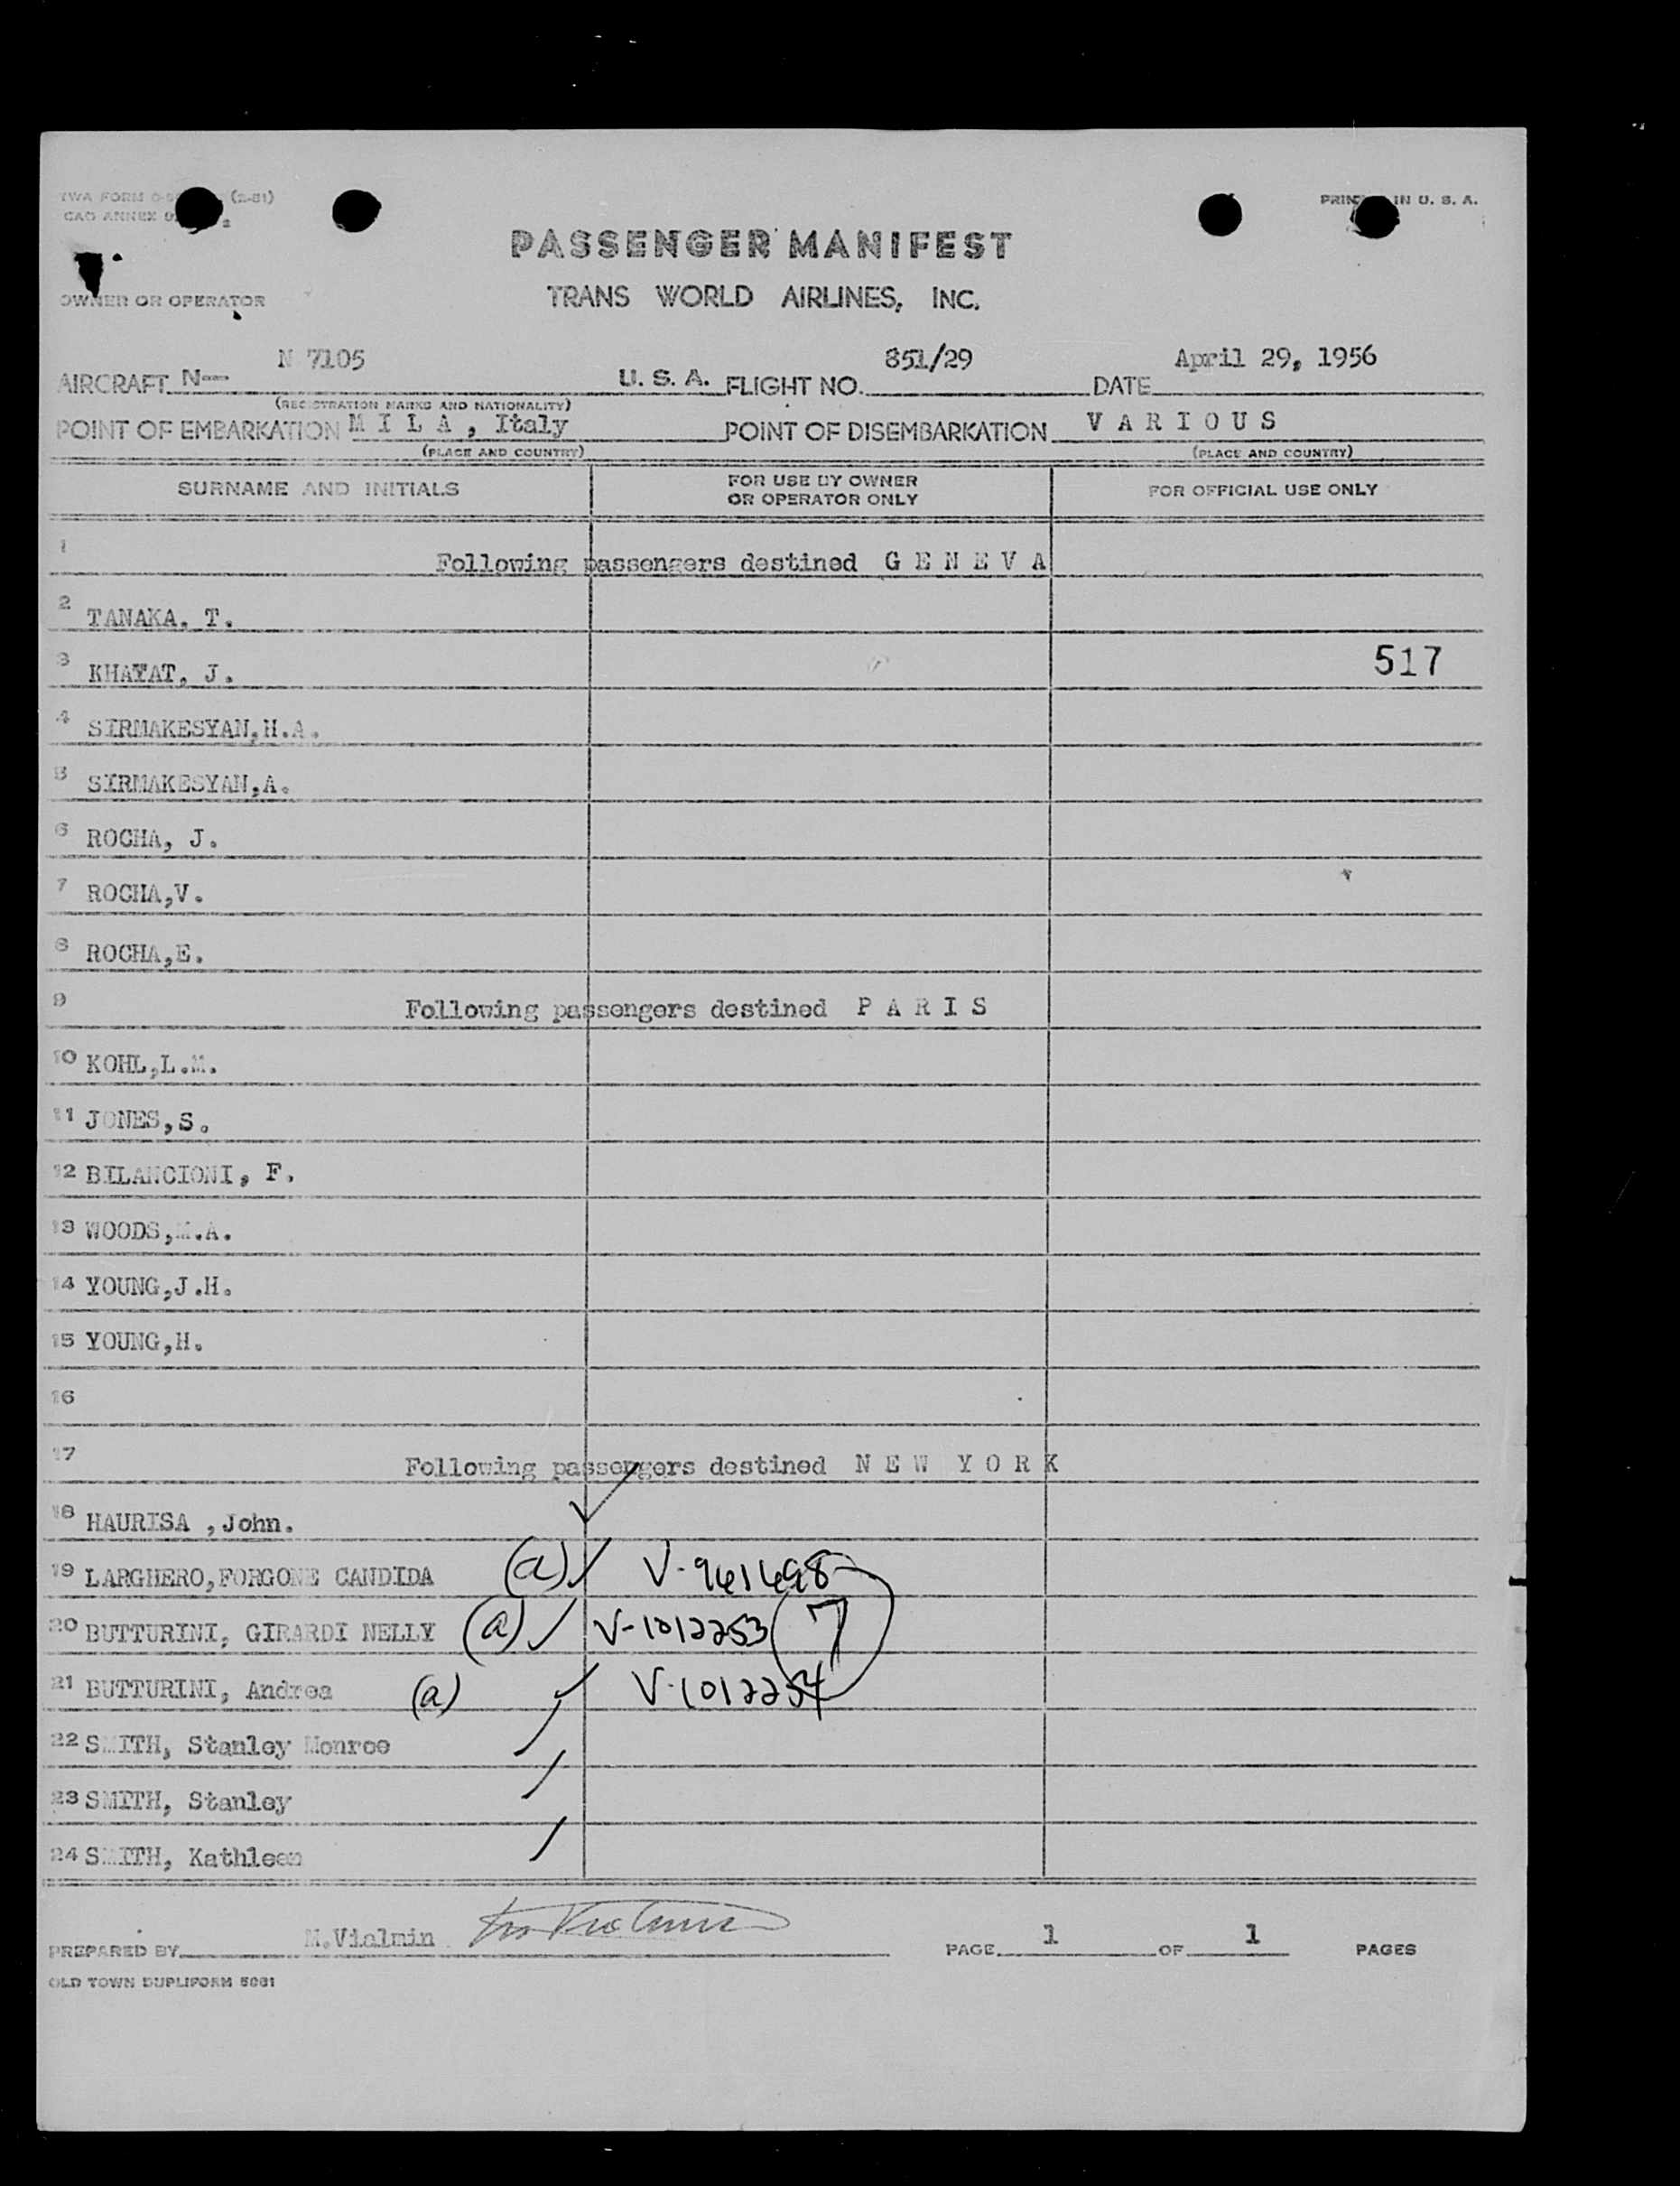 TWA FORM (2-51)
CAO ANNEX 9
PRINTED IN U. S. A.
PASSENGER MANIFEST
OWNER OR OPERATOR TRANS WORLD AIRLINES, INC.
N 7105 851/29 April 29, 1956
AIRCRAFT N-- U. S. A. FLIGHT NO. DATE
(REGISTRATION MARKS AND NATIONALITY)
POINT OF EMBARKATION M I L A , Italy POINT OF DISEMBARKATION V A R I O U S
(PLACE AND COUNTRY) (PLACE AND COUNTRY)
SURNAME AND INITIALS FOR USE BY OWNER OR OPERATOR ONLY FOR OFFICIAL USE ONLY
1 Following passengers destined G E N E V A
2 TANAKA, T.
3 KHAYAT, J. 517
4 SIRMAKESYAN,H.A.
5 SIRMAKESYAN,A.
6 ROCHA, J.
7 ROCHA,V.
8 ROCHA,E.
9 Following passengers destined P A R I S
10 KOHL,L.M.
11 JONES,S.
12 BILANCIONI, F.
13 WOODS,M.A.
14 YOUNG,J.H.
15 YOUNG,H.
16
17 Following passengers destined N E W Y O R K
18 HAURISA ,John.
19 LARGHERO,FORGONE CANDIDA (a) V-961698
20 BUTTURINI, GIRARDI NELLY (a) V-1012253 7
21 BUTTURINI, Andrea (a) V-1012254
22 SMITH, Stanley Monroe
23 SMITH, Stanley
24 SMITH, Kathleen
PREPARED BY M.Vialmin PAGE 1 OF 1 PAGES
OLD TOWN DUPLIFORM 5081